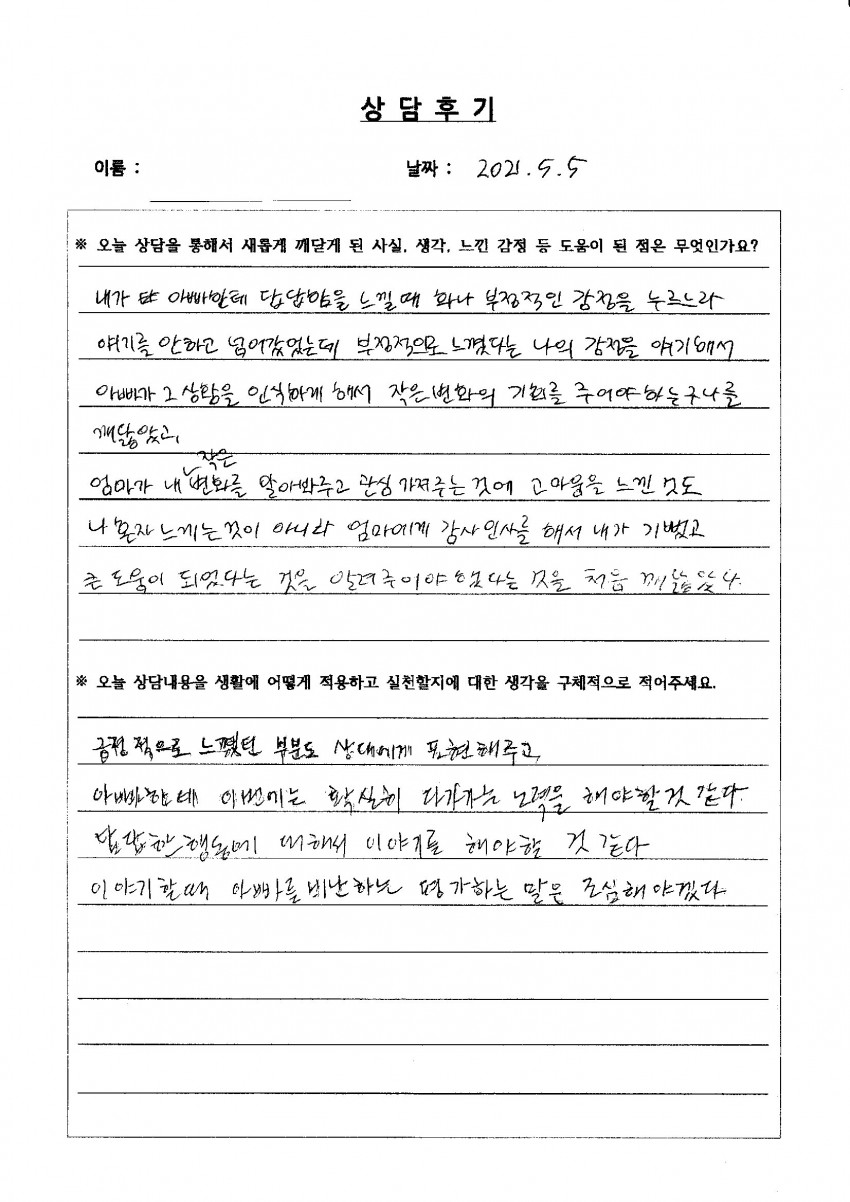 상 담 후 기
이름 : 날짜 : 2021. 5. 5
※ 오늘 상담을 통해서 새롭게 깨닫게 된 사실, 생각, 느낀 감정 등 도움이 된 점은 무엇인가요?
내가 또 아빠한테 답답함을 느낄때 화나 부정적인 감정을 누르느라
얘기를 안하고 넘어갔었는데 부정적으로 느꼈다는 나의 감정을 얘기해서
아빠가 그 상황을 인식하게 해서 작은변화의 기회를 주어야하는구나를
깨닳았고,
작은
엄마가 내 변화를 알아봐주고 관심가져주는 것에 고마움을 느낀 것도
나 혼자 느끼는것이 아니라 엄마에게 감사인사를 해서 내가 기뻤고
큰 도움이 되었다는 것을 알려주어야 했다는 것을 처음 깨닳았다.
※ 오늘 상담내용을 생활에 어떻게 적용하고 실천할지에 대한 생각을 구체적으로 적어주세요.
긍정적으로 느꼈던 부분도 상대에게 표현해주고,
아빠한테 이번에는 확실히 다가가는 노력을 해야할것 같다.
답답한 행동에 대해서 이야기를 해야할 것 같다
이야기할때 아빠를 비난하는 평가하는 말은 조심해야겠다.